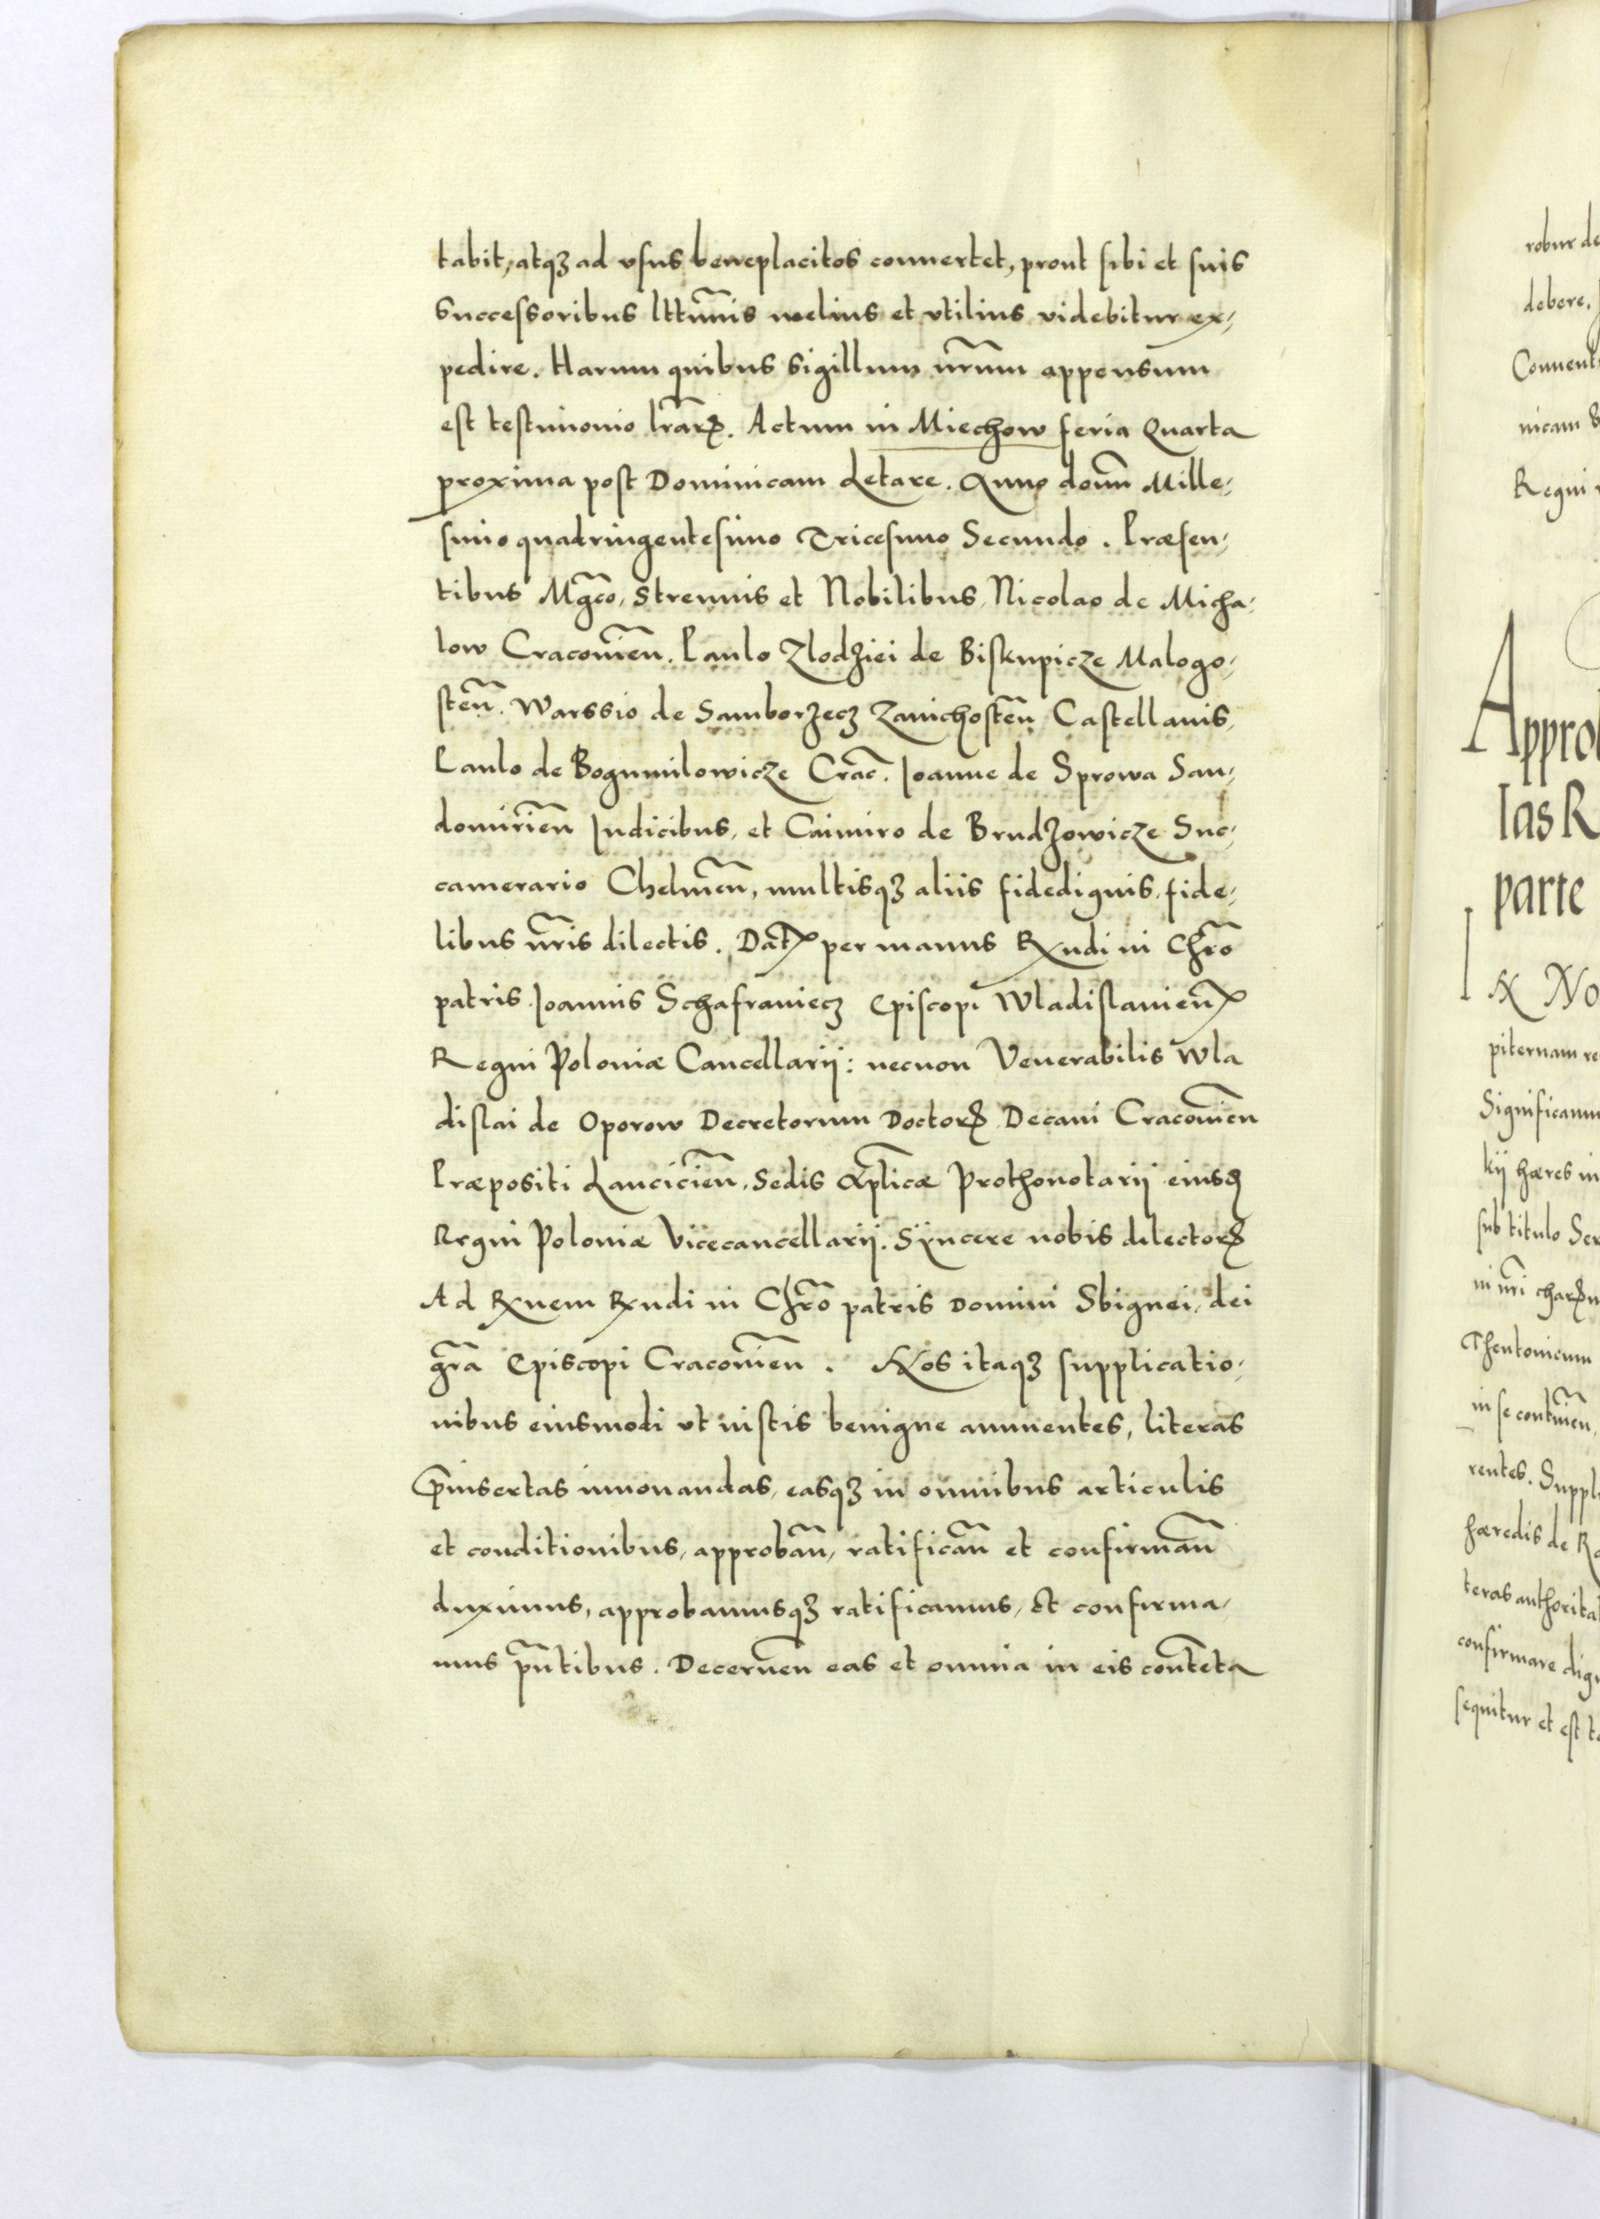 tabit, atqꝫ ad vsus beneplacitos conuertet, prout sibi et suis
Successoribus lttimis melius et vtilius videbitur ex⸗
pedire. Harum quibus Sigillum nr̃um appensum
est testimonio lr̃arꝝ. Actum in Miechow feria Quarta
proxima post Dominicam Letare. Anno domĩ Mille⸗
simo quadringentesimo Tricesimo Secundo. Præsen⸗
tibus Mg̃co, Strenuis et Nobilibus, Nicolao de Micha⸗
low Cracouien̄. Paulo Zlodziei de Biskupicze Malogo⸗
sten̄. Warssio de Samborzecz Zauichosten̄ Castellanis,
Paulo de Bogumilowicze Crac̄. Joanne de Sprowa San⸗
domirien̄ Judicibus, et Caimiro de Brudzowicze Suc⸗
camerario Chelmen̄, multisqꝫ aliis fidedignis, fide⸗
libus nr̃is dilectis. Datꝭ per manus Rxndi in Chr̃o
patris Joannis Schafraniecz Episcopi Wladislauien̄
Regni Poloniæ Cancellarij: necnon Venerabilis Wla
dislai de Oporow Decretorum Doctorꝭ Decani Cracouien̄
Præpositi Lancicien̄, Sedis Ap̃licæ Prothonotarij eiusdꝫ
Regni Poloniæ Vicecancellarij. Syncere nobis dilectorꝝ
Ad Rxnem Rxndi in Chr̃o patris Domini Sbignei, dei
gr̃a Episcopi Cracouien̄. Nos itaqꝫ supplicatio⸗
nibus eiusmodi vt iustis benigne annuentes, literas
p̃insertas innouandas, easqꝫ in omnibus articulis
et conditionibus, approban̄, ratifican̄ et confirman̄
duximus, approbamusqꝫ ratificamus, Et confirma⸗
mus p̃ntibus. Decernen̄ eas et omnia in eis conten̄ta
robur de
debere.
Conuent
nicam
Regni
Approb
las R
parte
No
piternam re
Significamu
kij hæres in
sub titulo Ser
in nr̃i
Theutonicum
in se contin̄en,
rentes. Suppl
hæredis de
teras authorita
confirmare dig
sequitur et est t